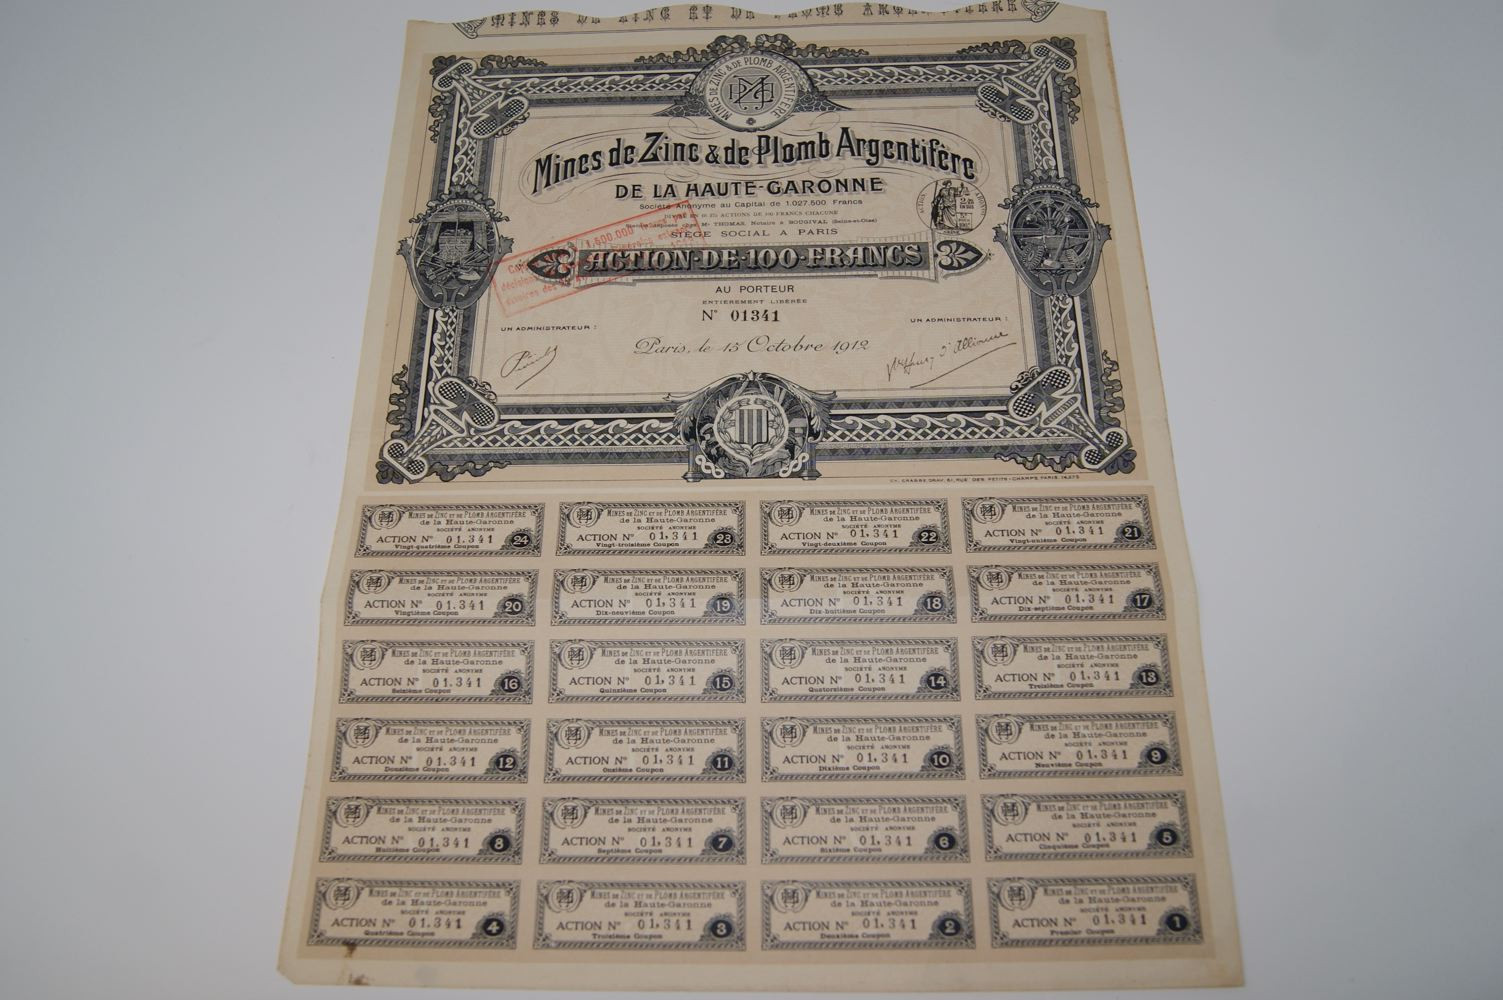 MINES DE ZINC ET DE PLOMB ARGENTIFÈRE
MINES DE ZINC & DE PLOMB ARGENTIFÈRE
Mines de Zinc & de Plomb Argentifère
DE LA HAUTE-GARONNE
Société Anonyme au Capital de 1.027.500 Francs
DIVISÉ EN 10.275 ACTIONS DE 100 FRANCS CHACUNE
Statuts déposés chez Me THOMAS, Notaire à BOUGIVAL (Seine-et-Oise)
SIÈGE SOCIAL A PARIS
1.600.000
ACTION-DE-100-FRANCS
AU PORTEUR
ENTIÈREMENT LIBÉRÉE
N° 01341
UN ADMINISTRATEUR :
UN ADMINISTRATEUR :
Paris, le 15 Octobre 1912
CH. CRABBE GRAV. 61, RUE DES PETITS-CHAMPS, PARIS. 14.275
MINES DE ZINC ET DE PLOMB ARGENTIFÈRE
de la Haute-Garonne
SOCIÉTÉ ANONYME
ACTION N° 01.341
Vingt-quatrième Coupon
24
MINES DE ZINC ET DE PLOMB ARGENTIFÈRE
de la Haute-Garonne
SOCIÉTÉ ANONYME
ACTION N° 01.341
Vingt-troisième Coupon
23
MINES DE ZINC ET DE PLOMB ARGENTIFÈRE
de la Haute-Garonne
SOCIÉTÉ ANONYME
ACTION N° 01.341
Vingt-deuxième Coupon
22
MINES DE ZINC ET DE PLOMB ARGENTIFÈRE
de la Haute-Garonne
SOCIÉTÉ ANONYME
ACTION N° 01.341
Vingt-unième Coupon
21
MINES DE ZINC ET DE PLOMB ARGENTIFÈRE
de la Haute-Garonne
SOCIÉTÉ ANONYME
ACTION N° 01.341
Vingtième Coupon
20
MINES DE ZINC ET DE PLOMB ARGENTIFÈRE
de la Haute-Garonne
SOCIÉTÉ ANONYME
ACTION N° 01.341
Dix-neuvième Coupon
19
MINES DE ZINC ET DE PLOMB ARGENTIFÈRE
de la Haute-Garonne
SOCIÉTÉ ANONYME
ACTION N° 01.341
Dix-huitième Coupon
18
MINES DE ZINC ET DE PLOMB ARGENTIFÈRE
de la Haute-Garonne
SOCIÉTÉ ANONYME
ACTION N° 01.341
Dix-septième Coupon
17
MINES DE ZINC ET DE PLOMB ARGENTIFÈRE
de la Haute-Garonne
SOCIÉTÉ ANONYME
ACTION N° 01.341
Seizième Coupon
16
MINES DE ZINC ET DE PLOMB ARGENTIFÈRE
de la Haute-Garonne
SOCIÉTÉ ANONYME
ACTION N° 01.341
Quinzième Coupon
15
MINES DE ZINC ET DE PLOMB ARGENTIFÈRE
de la Haute-Garonne
SOCIÉTÉ ANONYME
ACTION N° 01.341
Quatorzième Coupon
14
MINES DE ZINC ET DE PLOMB ARGENTIFÈRE
de la Haute-Garonne
SOCIÉTÉ ANONYME
ACTION N° 01.341
Treizième Coupon
13
MINES DE ZINC ET DE PLOMB ARGENTIFÈRE
de la Haute-Garonne
SOCIÉTÉ ANONYME
ACTION N° 01.341
Douzième Coupon
12
MINES DE ZINC ET DE PLOMB ARGENTIFÈRE
de la Haute-Garonne
SOCIÉTÉ ANONYME
ACTION N° 01.341
Onzième Coupon
11
MINES DE ZINC ET DE PLOMB ARGENTIFÈRE
de la Haute-Garonne
SOCIÉTÉ ANONYME
ACTION N° 01.341
Dixième Coupon
10
MINES DE ZINC ET DE PLOMB ARGENTIFÈRE
de la Haute-Garonne
SOCIÉTÉ ANONYME
ACTION N° 01.341
Neuvième Coupon
9
MINES DE ZINC ET DE PLOMB ARGENTIFÈRE
de la Haute-Garonne
SOCIÉTÉ ANONYME
ACTION N° 01.341
Huitième Coupon
8
MINES DE ZINC ET DE PLOMB ARGENTIFÈRE
de la Haute-Garonne
SOCIÉTÉ ANONYME
ACTION N° 01.341
Septième Coupon
7
MINES DE ZINC ET DE PLOMB ARGENTIFÈRE
de la Haute-Garonne
SOCIÉTÉ ANONYME
ACTION N° 01.341
Sixième Coupon
6
MINES DE ZINC ET DE PLOMB ARGENTIFÈRE
de la Haute-Garonne
SOCIÉTÉ ANONYME
ACTION N° 01.341
Cinquième Coupon
5
MINES DE ZINC ET DE PLOMB ARGENTIFÈRE
de la Haute-Garonne
SOCIÉTÉ ANONYME
ACTION N° 01.341
Quatrième Coupon
4
MINES DE ZINC ET DE PLOMB ARGENTIFÈRE
de la Haute-Garonne
SOCIÉTÉ ANONYME
ACTION N° 01.341
Troisième Coupon
3
MINES DE ZINC ET DE PLOMB ARGENTIFÈRE
de la Haute-Garonne
SOCIÉTÉ ANONYME
ACTION N° 01.341
Deuxième Coupon
2
MINES DE ZINC ET DE PLOMB ARGENTIFÈRE
de la Haute-Garonne
SOCIÉTÉ ANONYME
ACTION N° 01.341
Premier Coupon
1